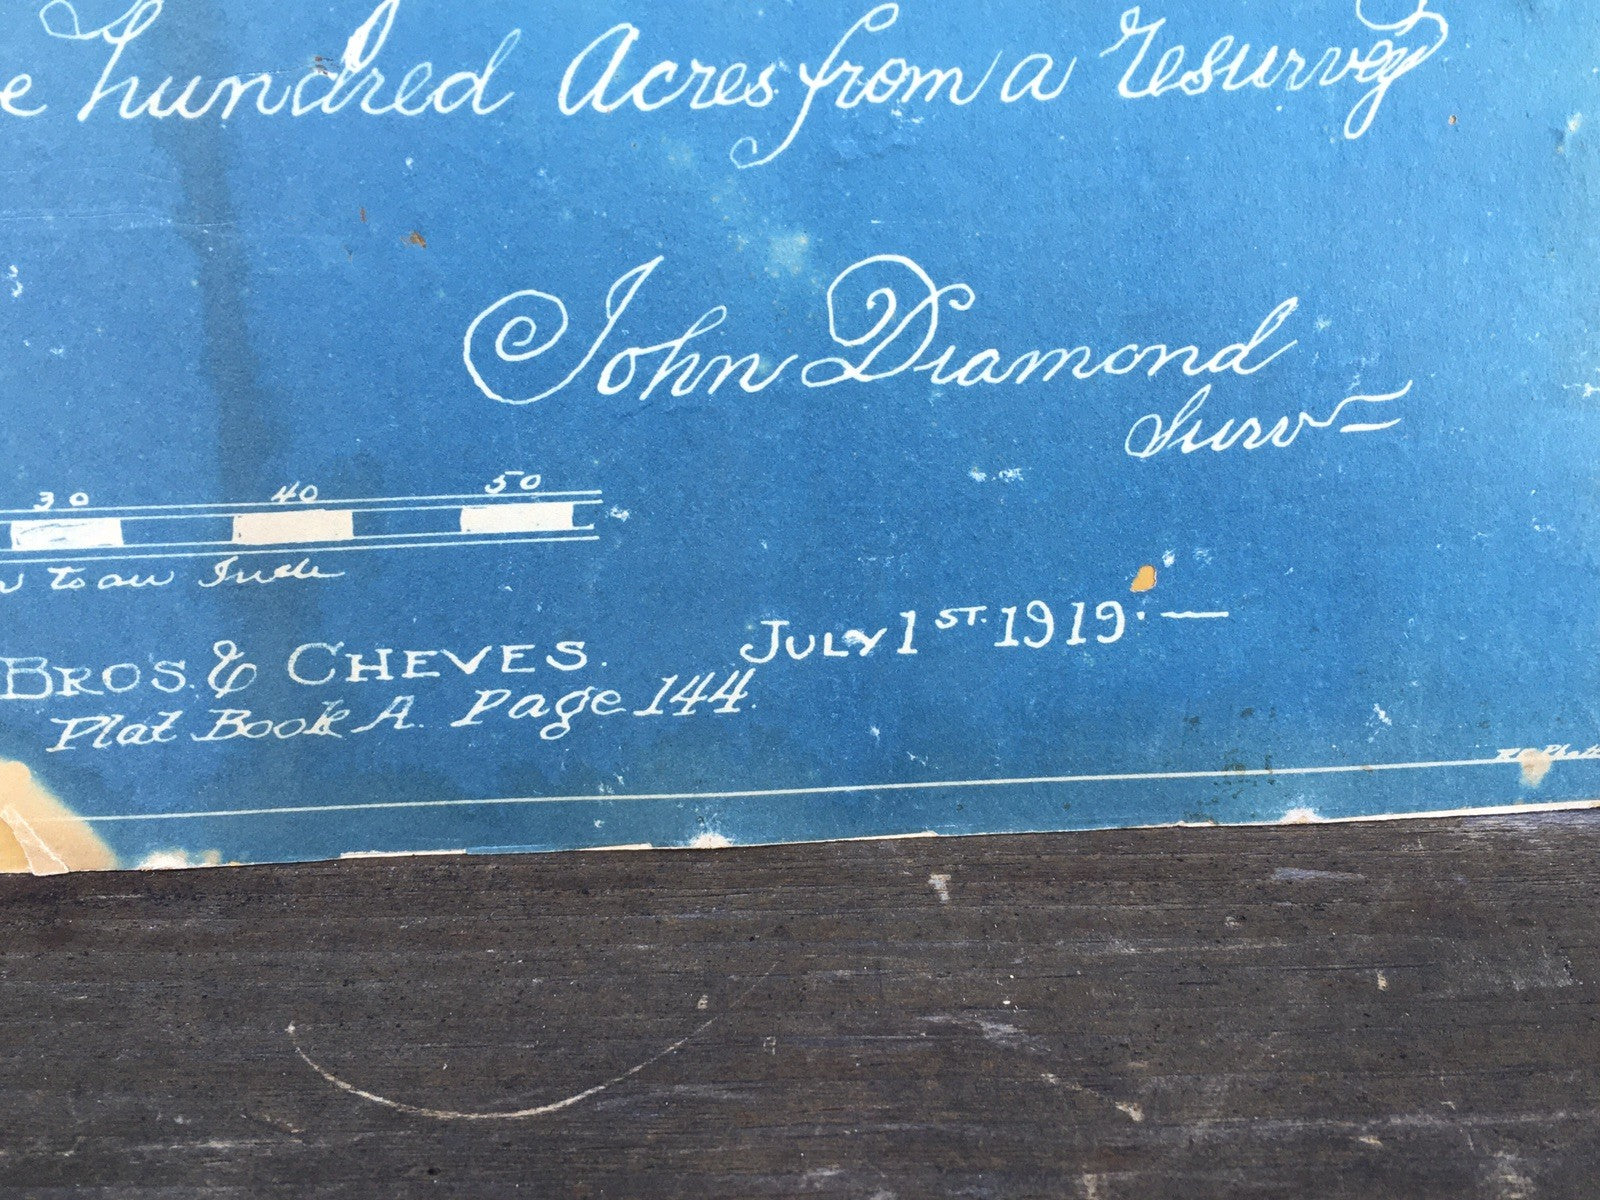 e hundred Acres from a resurvey
John Diamond
Surv
30 40 50
to an Inch
BRO'S. & CHEVES.
JULY 1ST. 1919. —
Plat Book A. Page 144.